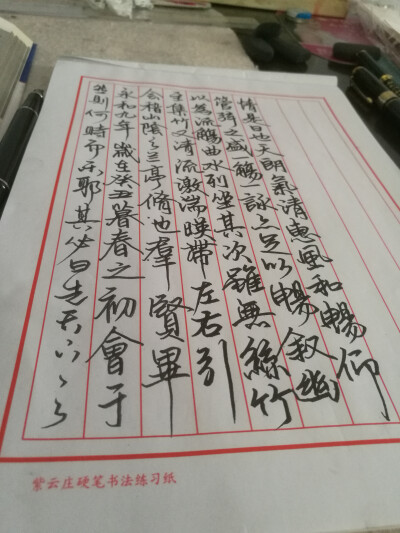 情是日也天朗氣清惠風和暢仰
管弦之盛一觴一詠亦足以暢叙幽
以為流觴曲水列坐其次雖無絲竹
集竹又清流激湍映帶左右引
會稽山陰之兰亭脩也羣賢畢
永和九年歲在癸丑暮春之初會于
然則何時而乐耶其必曰先天下之
紫云庄硬笔书法练习纸